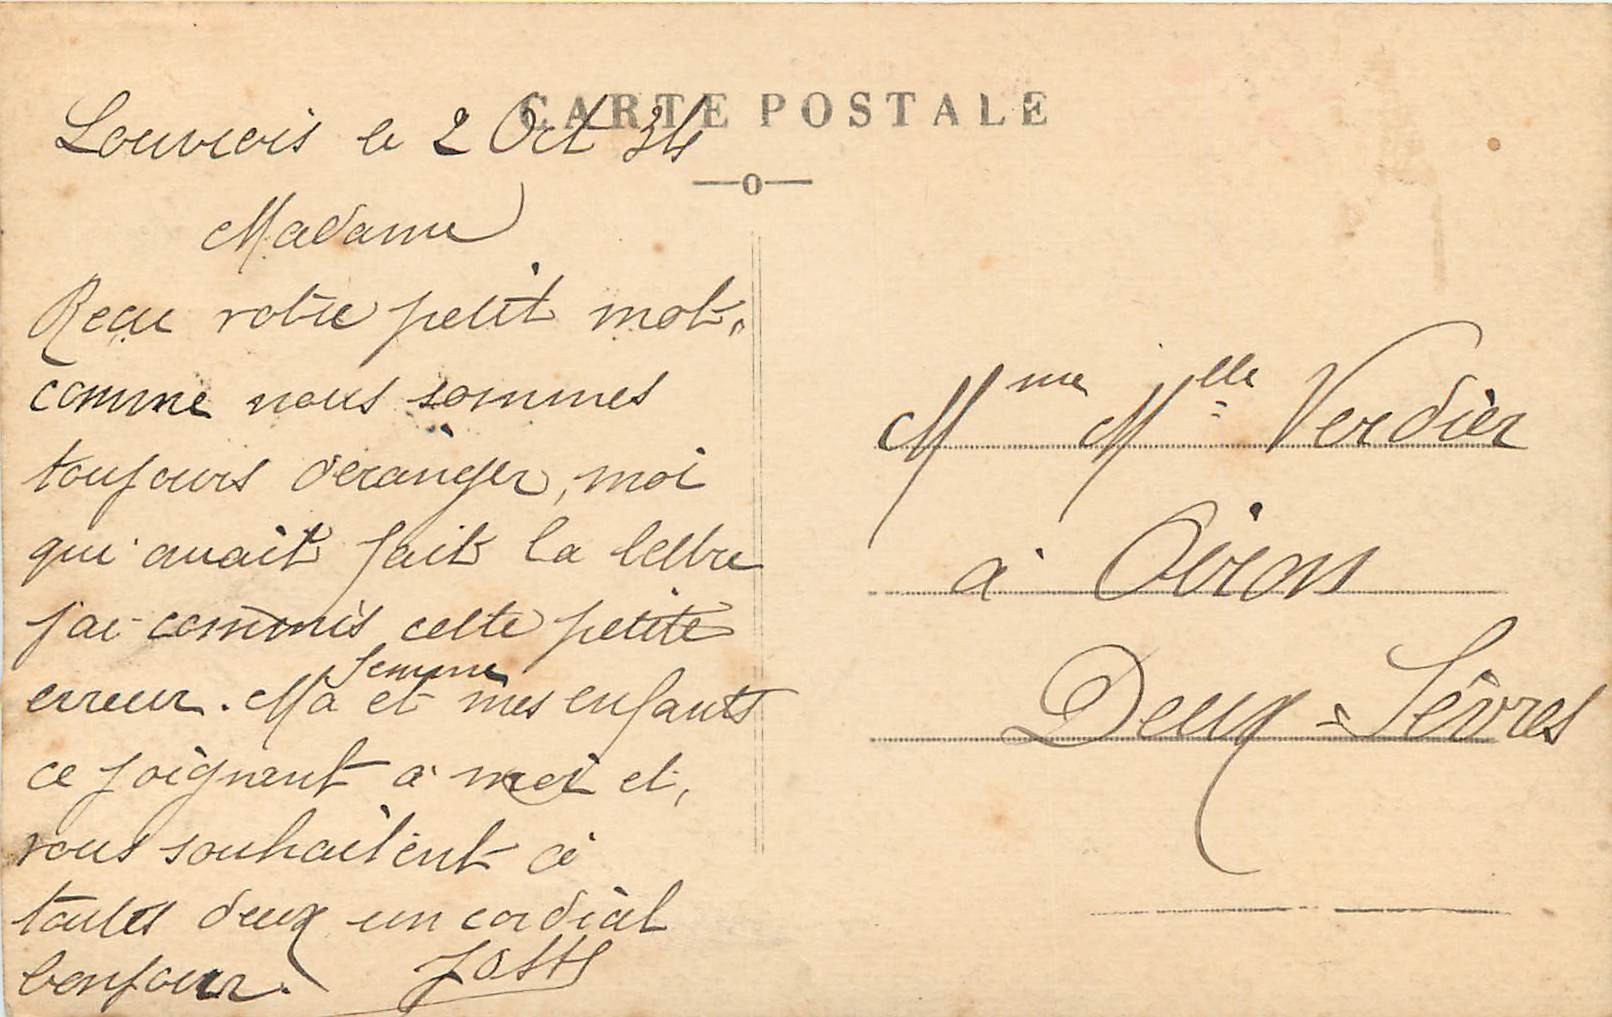 CARTE POSTALE
Louvois le 2 Oct 34
Madame
Reçu votre petit mot,
comme nous sommes
toujours déranger, moi
qui avait fait la lettre
j'ai commis cette petite
erreur. Ma femme et mes enfants
ce joignent à moi et,
vous souhaitent à
toutes deux un cordial
bonjour.
Mme Mlle Verdier
à Oiron
Deux-Sèvres